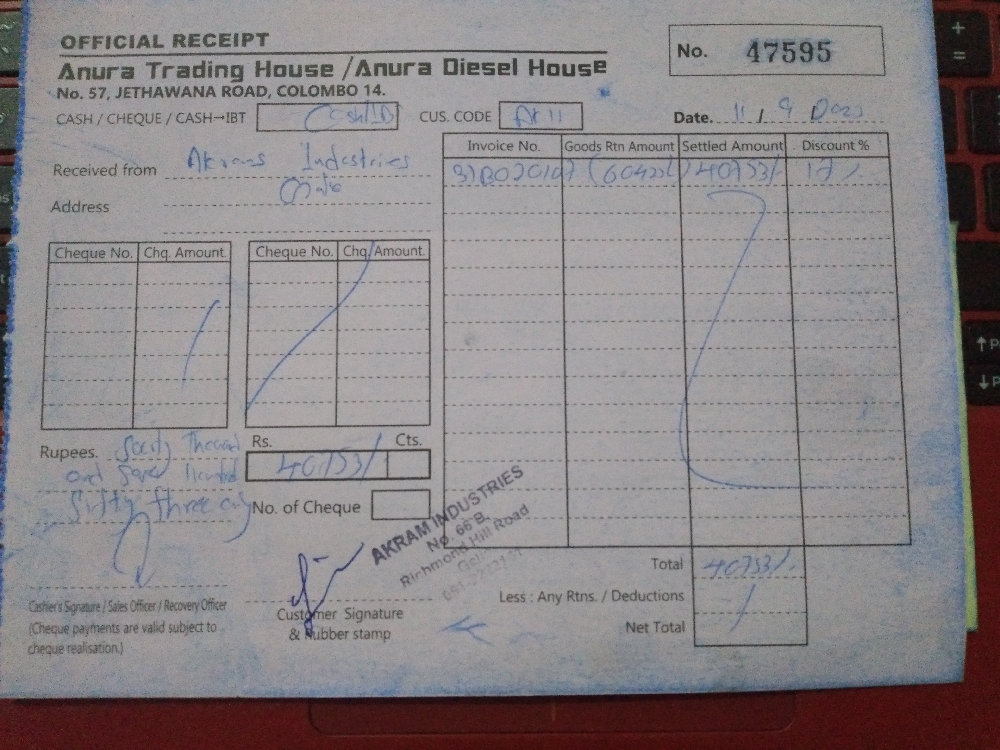 OFFICIAL RECEIPT
No. 47595
Anura Trading House / Anura Diesel House
No. 57, JETHAWANA ROAD, COLOMBO 14.
CASH / CHEQUE / CASH→IBT
CUS. CODE
Date. 11 / 9
Received from Akrams Industries
Address
Invoice No. Goods Rtn Amount Settled Amount Discount %
40753/-
Cheque No. Chq. Amount. Cheque No. Chq. Amount.
Rupees.
Rs. Cts.
40753/-
three
No. of Cheque
AKRAM INDUSTRIES
No. 66 B,
Richmond Hill Road
Total 40753/-
Less : Any Rtns. / Deductions
Net Total
Cashier's Signature / Sales Officer / Recovery Officer
(Cheque payments are valid subject to
cheque realisation.)
Customer Signature
& Rubber stamp